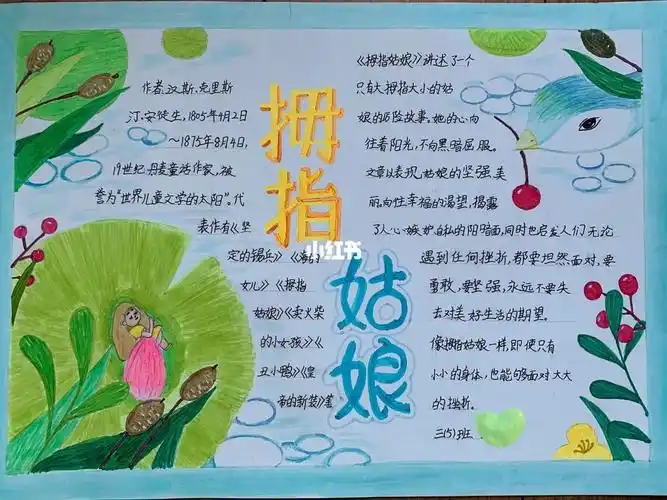 拇指
姑娘
作者:汉斯.克里斯
汀.安徒生,1805年4月2日
～1875年8月4日,
19世纪丹麦童话作家,被
誉为“世界儿童文学的太阳”。代
表作有《坚
定的锡兵》《海的
女儿》《拇指
姑娘》《卖火柴
的小女孩》《
丑小鸭》《皇
帝的新装》等
《拇指姑娘》讲述了一个
只有大拇指大小的姑
娘的历险故事。她的心向
往着阳光,不向黑暗屈服。
文章以表现姑娘的坚强、美
丽、向往幸福的渴望,揭露
了人心嫉妒自私的阴暗面,同时也启发人们无论
遇到任何挫折,都要坦然面对,要
勇敢,要坚强,永远不要失
去对美好生活的期望。
像拇指姑娘一样,即使只有
小小的身体,也能够面对大大
的挫折。
三(5)班
小红书